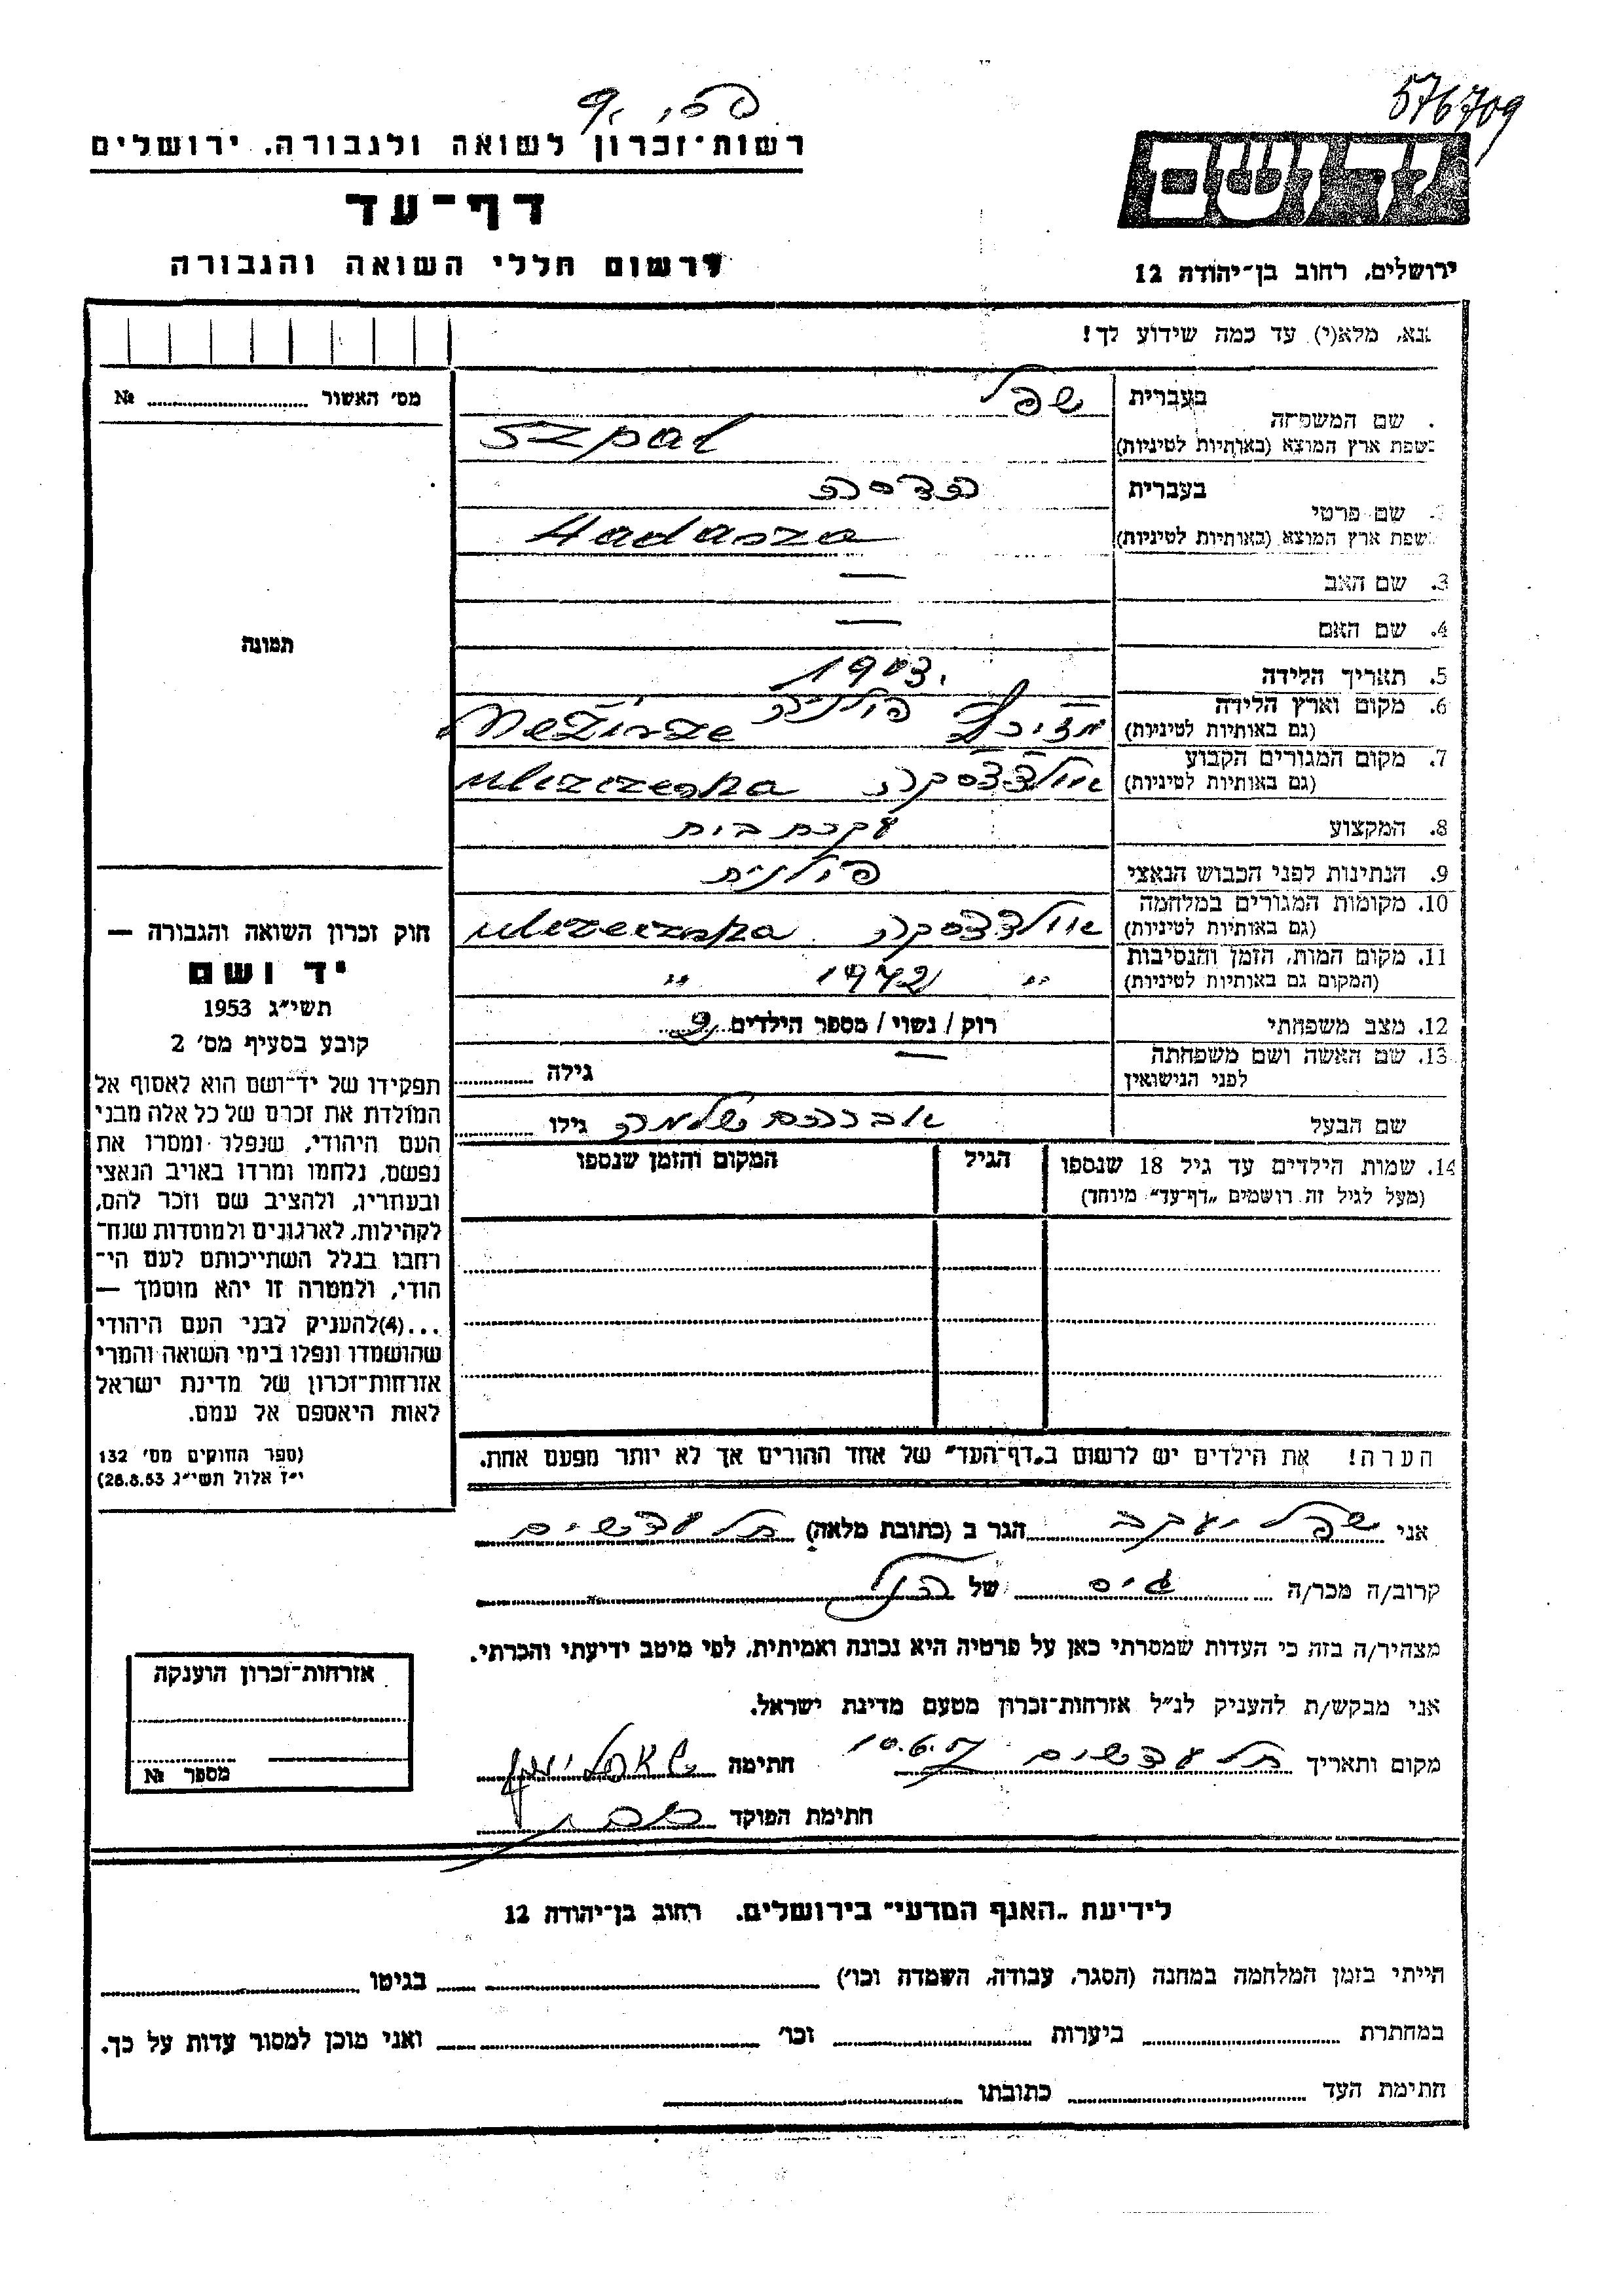 576709
רשות־זכרון לשואה ולגבורה, ירושלים
ידושם
דף־עד
לרשום חללי השואה והגבורה
ירושלים, רחוב בן־יהודה 12
נא, מלא(י) עד כמה שידוע לך!
מס׳ האשור № 
שם המשפחה בעברית שפל
בשפת ארץ המוצא (באותיות לטיניות) Szpal
שם פרטי בעברית הדסה
בשפת ארץ המוצא (באותיות לטיניות) Hadasza
3. שם האב —
4. שם האם —
תמונה
5. תאריך הלידה 1903.
6. מקום וארץ הלידה פולניה
(גם באותיות לטיניות)
7. מקום המגורים הקבוע
(גם באותיות לטיניות)
8. המקצוע עקרת בית
9. הנתינות לפני הכבוש הנאצי פולנית
10. מקומות המגורים במלחמה
(גם באותיות לטיניות)
11. מקום המות, הזמן והנסיבות
(המקום גם באותיות לטיניות) " 1942 "
12. מצב משפחתי רוק / נשוי / מספר הילדים 2
13. שם האשה ושם משפחתה
לפני הנישואין — גילה
שם הבעל אברהם שלמה גילו
14. שמות הילדים עד גיל 18 שנספו הגיל המקום והזמן שנספו
(מעל לגיל זה רושמים „דף־עד״ מיוחד)
חוק זכרון השואה והגבורה —
יד ושם
תשי״ג 1953
קובע בסעיף מס׳ 2
תפקידו של יד־ושם הוא לאסוף אל
המולדת את זכרם של כל אלה מבני
העם היהודי, שנפלו ומסרו את
נפשם, נלחמו ומרדו באויב הנאצי
ובעוזריו, ולהציב שם וזכר להם,
לקהילות, לארגונים ולמוסדות שנח־
רבו בגלל השתייכותם לעם הי־
הודי, ולמטרה זו יהא מוסמך —
...(4)להעניק לבני העם היהודי
שהושמדו ונפלו בימי השואה והמרי
אזרחות־זכרון של מדינת ישראל
לאות היאספם אל עמם.
(ספר החוקים מס׳ 132
י״ז אלול תשי״ג 28.8.53)
הערה! את הילדים יש לרשום ב„דף־העד״ של אחד ההורים אך לא יותר מפעם אחת.
אני שפל יעקב הגר ב (כתובת מלאה) תל עדשים
קרוב/ה מכר/ה גיס של הנ״ל
מצהיר/ה בזה כי העדות שמסרתי כאן על פרטיה היא נכונה ואמיתית, לפי מיטב ידיעתי והכרתי.
אני מבקש/ת להעניק לנ״ל אזרחות־זכרון מטעם מדינת ישראל.
מקום ותאריך תל עדשים 10.6.57 חתימה
חתימת הפוקד
אזרחות־זכרון הוענקה
מספר №
לידיעת „האגף המדעי״ בירושלים, רחוב בן־יהודה 12
הייתי בזמן המלחמה במחנה (הסגר, עבודה, השמדה וכו׳) בגיטו
במחתרת ביערות וכו׳ ואני מוכן למסור עדות על כך.
חתימת העד כתובתו